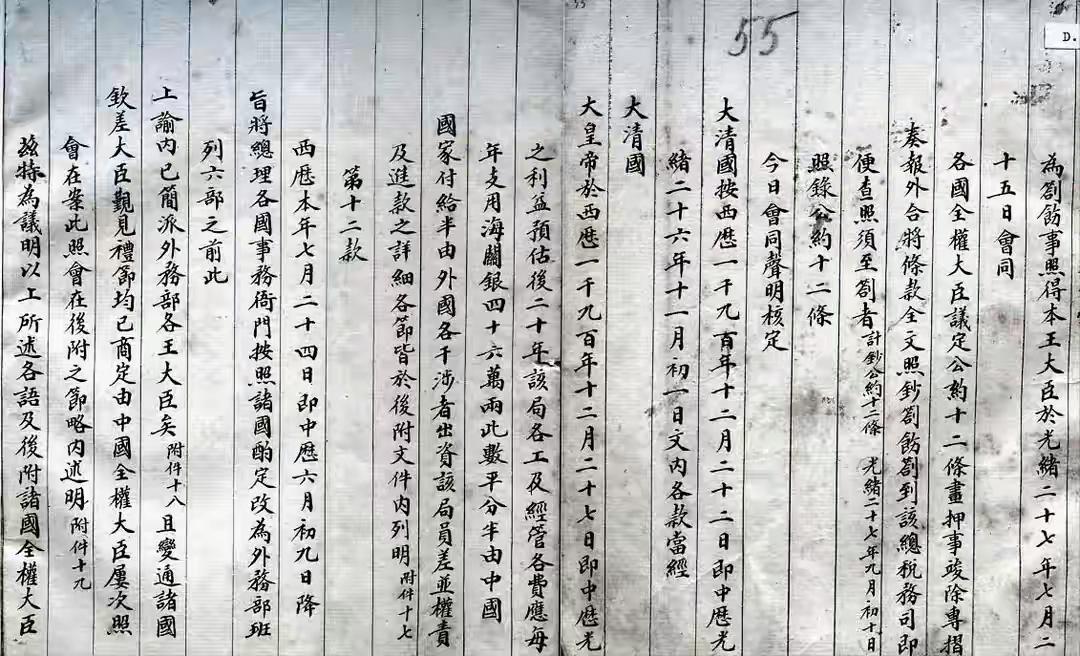 55
D.
為劄飭事照得本王大臣於光緒二十七年七月二
十五日會同
各國全權大臣議定公約十二條畫押事竣除專摺
奏報外合將條款全文照鈔劄飭劄到該總稅務司即
便查照須至劄者計鈔公約十二條 光緒二十七年九月初十日
照錄公約十二條
今日會同聲明核定
大清國按西歷一千九百年十二月二十二日即中歷光
緒二十六年十一月初一日文內各款當經
大清國
大皇帝於西歷一千九百年十二月二十七日即中歷光
之利益預估後二十年該局各工及經管各費應每
年支用海關銀四十六萬兩此數平分半由中國
國家付給半由外國各干涉者出資該局員差並權責
及進款之詳細各節皆於後附文件內列明附件十七
第十二款
西歷本年七月二十四日即中歷六月初九日降
旨將總理各國事務衙門按照諸國酌定改為外務部班
列六部之前此
上諭內已簡派外務部各王大臣矣附件十八且變通諸國
欽差大臣覲見禮節均已商定由中國全權大臣屢次照
會在案此照會在後附之節略內述明附件十九
茲特為議明以上所述各語及後附諸國全權大臣